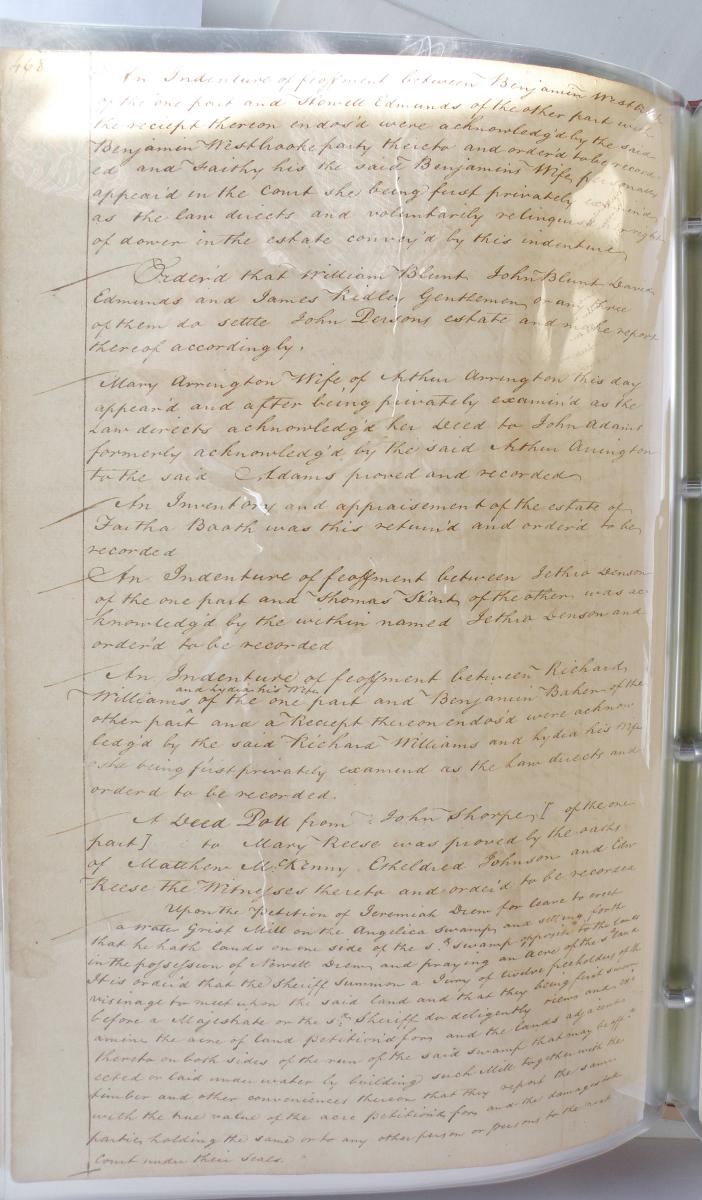 468
An Indenture of feoffment between Benjamin Westbrooke
of the one part and Howell Edmunds of the other part with
the reciept thereon endos'd were acknowledg'd by the said
Benjamin Westbrooke party thereto and order'd to be record
ed and Faithy his the said Benjamins Wife personally
appear'd in the Court she being first privately examind
as the law directs and voluntarily relinquish'd her right
of dower in the estate convey'd by this indenture
Order'd that William Blunt John Blunt David
Edmunds and James Ridley Gentlemen or any three
of them do settle John Persons estate and make report
thereof accordingly.
Mary Arrington Wife of Arthur Arrington this day
appear'd and after being privately examin'd as the
Law directs acknowledg'd her Deed to John Adams
formerly acknowledg'd by the said Arthur Arrington
to the said Adams proved and recorded
An Inventory and appraisement of the estate of
Faitha Booth was this return'd and order'd to be
recorded
An Indenture of feoffment between Jethro Denson
of the one part and Thomas of the other was ac
knowledg'd by the within named Jethro Denson and
order'd to be recorded
An Indenture of feoffment between Richard
and Lydia his Wife
Williams of the one part and Benjamin Baker of the
other part and a Reciept thereon endos'd were acknow
ledg'd by the said Richard Williams and Lydia his Wife
she being first privately examind as the Law directs and
orderd to be recorded.
A Deed Poll from John Thorpe [ of the one
part] to Mary Reese was proved by the oaths
of Matthew McKenny Etheldred Johnson and Edw
Reese the Witnesses thereto and order'd to be recorded
Upon the Petition of Jeremiah Drew for leave to erect
a water Grist Mill on the Angelica swamp and setting forth
that he hath lands on one side of the sd. swamp opposite to the lands
in the possession of Newett Drew and praying an acre of the same
It is orderd that the Sheriff Summon a Jury of twelve freeholders of the
visinage to meet upon the said land and that they being first sworn
before a Majestrate or the sd. Sheriff do deligently view and ex
amine the acre of land petition'd for and the lands adjacent
thereto on both sides of the run of the said swamp that may be aff
ected or laid under water by building such Mill together with the
timber and other conveniences thereon that they report the same
with the true value of the acre petition'd for and the damages to the
parties holding the same or to any other person or persons to the next
Court under their seals.